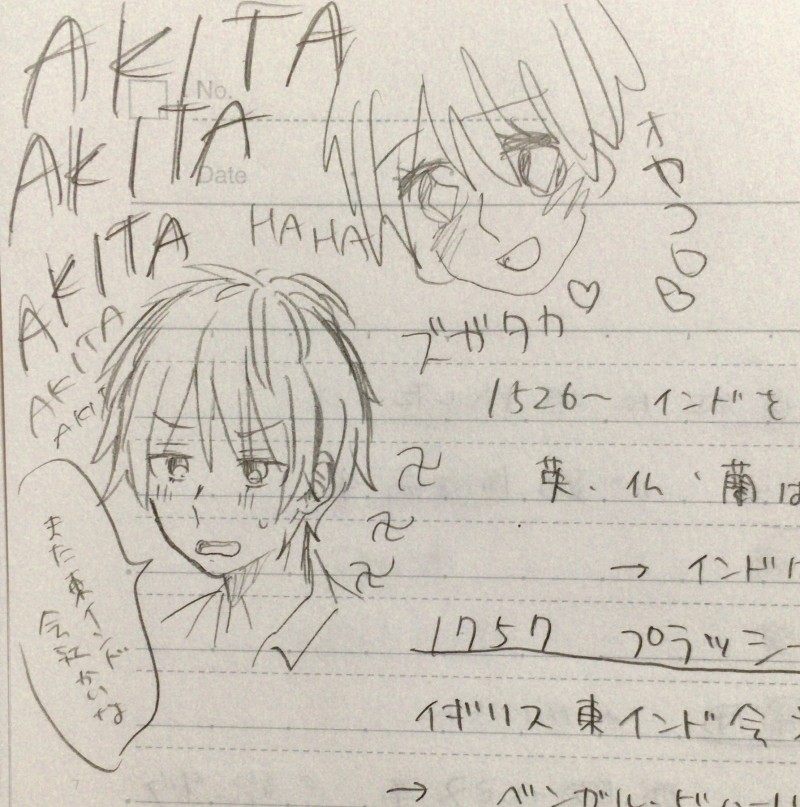 AKITA
No.
AKITA
Date
AKITA
AKITA
AKIT
HA HA
オヤツ
ズガタカ
1526〜 インドを
英・仏・蘭は
→ インド
1757 プラッシー
イギリス東インド会
→ ベンガル
また東インド
会社かいな
卍
卍
卍